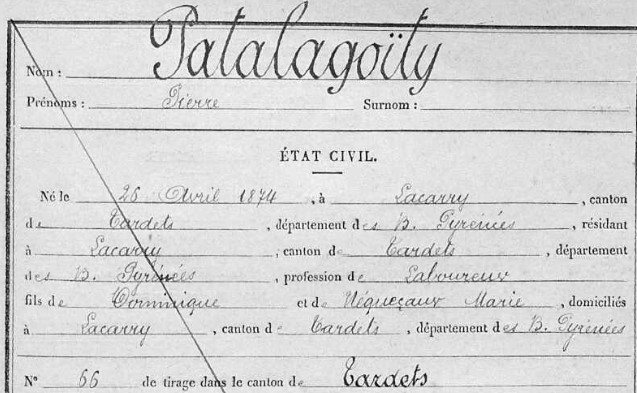 Nom : Patalagoïty
Prénoms : Pierre Surnom :
ÉTAT CIVIL.
Né le 26 Avril 1874, à Lacarry, canton
de Tardets, département des B. Pyrénées, résidant
à Lacarry, canton de Tardets, département
des B. Pyrénées, profession de Laboureur
fils de Dominique et de Uéqueçaux Marie, domiciliés
à Lacarry, canton de Tardets, département des B. Pyrénées
N° 66 de tirage dans le canton de Tardets